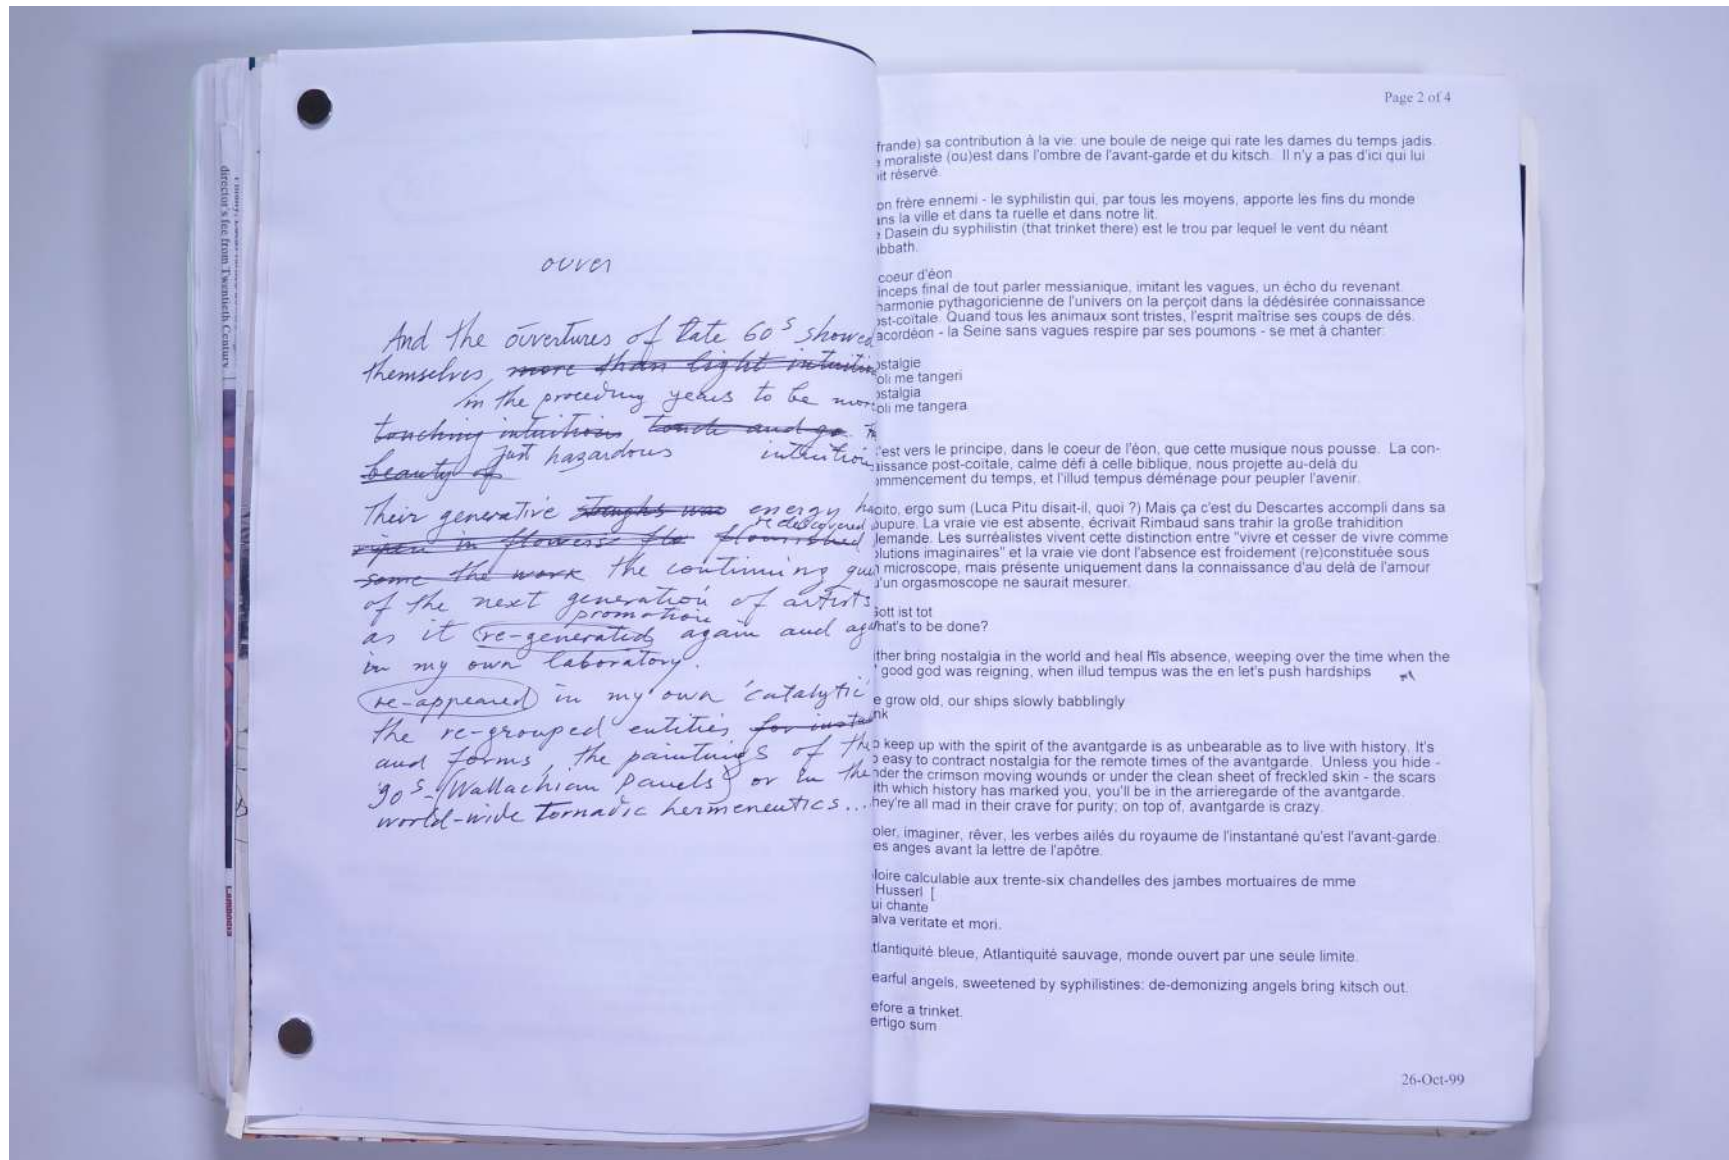 director's fee from Twentieth Century
ouver
And the ouvertures of late 60s showed
themselves more than light intuition
in the proceeding years to be more
touching intuitions touch and go
beauty of just hazardous intuitions
Their generative energy
rediscovered
ripen in flowers flo flourished
some the work the continuing
of the next generation of artists
promotion
as it re-generated again and
in my own laboratory.
re-appeared in my own 'catalytic'
the re-grouped entities for
and forms, the paintings of the
90s (Wallachian Panels) or in the
world-wide Tornadic hermeneutics...
Page 2 of 4
frande) sa contribution à la vie: une boule de neige qui rate les dames du temps jadis.
moraliste (ou)est dans l'ombre de l'avant-garde et du kitsch. Il n'y a pas d'ici qui lui
it réservé.
on frère ennemi - le syphilistin qui, par tous les moyens, apporte les fins du monde
ans la ville et dans ta ruelle et dans notre lit.
Dasein du syphilistin (that trinket there) est le trou par lequel le vent du néant
abbath.
coeur d'éon
inceps final de tout parler messianique, imitant les vagues, un écho du revenant.
harmonie pythagoricienne de l'univers on la perçoit dans la dédésirée connaissance
ost-coïtale. Quand tous les animaux sont tristes, l'esprit maîtrise ses coups de dés.
acordéon - la Seine sans vagues respire par ses poumons - se met à chanter:
ostalgie
oli me tangeri
ostalgia
oli me tangera
'est vers le principe, dans le coeur de l'éon, que cette musique nous pousse. La con-
aissance post-coïtale, calme défi à celle biblique, nous projette au-delà du
ommencement du temps, et l'illud tempus déménage pour peupler l'avenir.
oito, ergo sum (Luca Pitu disait-il, quoi ?) Mais ça c'est du Descartes accompli dans sa
oupure. La vraie vie est absente, écrivait Rimbaud sans trahir la große trahidition
lemande. Les surréalistes vivent cette distinction entre "vivre et cesser de vivre comme
olutions imaginaires" et la vraie vie dont l'absence est froidement (re)constituée sous
n microscope, mais présente uniquement dans la connaissance d'au delà de l'amour
u'un orgasmoscope ne saurait mesurer.
Gott ist tot
hat's to be done?
ither bring nostalgia in the world and heal His absence, weeping over the time when the
good god was reigning, when illud tempus was the en let's push hardships
e grow old, our ships slowly babblingly
nk
o keep up with the spirit of the avantgarde is as unbearable as to live with history. It's
o easy to contract nostalgia for the remote times of the avantgarde. Unless you hide -
nder the crimson moving wounds or under the clean sheet of freckled skin - the scars
ith which history has marked you, you'll be in the arrieregarde of the avantgarde.
hey're all mad in their crave for purity; on top of, avantgarde is crazy.
oler, imaginer, rêver, les verbes ailés du royaume de l'instantané qu'est l'avant-garde.
es anges avant la lettre de l'apôtre.
loire calculable aux trente-six chandelles des jambes mortuaires de mme
Husserl [
ui chante
alva veritate et mori.
tlantiquité bleue, Atlantiquité sauvage, monde ouvert par une seule limite.
earful angels, sweetened by syphilistines: de-demonizing angels bring kitsch out.
efore a trinket.
ertigo sum
26-Oct-99